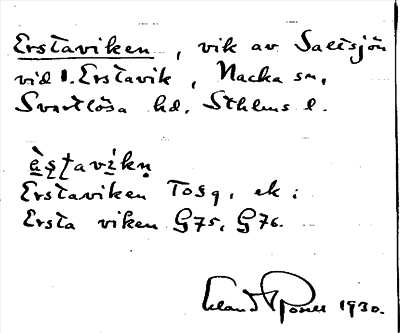 Erstaviken, vik av Saltsjön
vid 1. Erstavik, Nacka sn,
Svartlösa hd, Sthlms l.
Erstaviken To59, ek:
Ersta viken G75, G76.
1930.